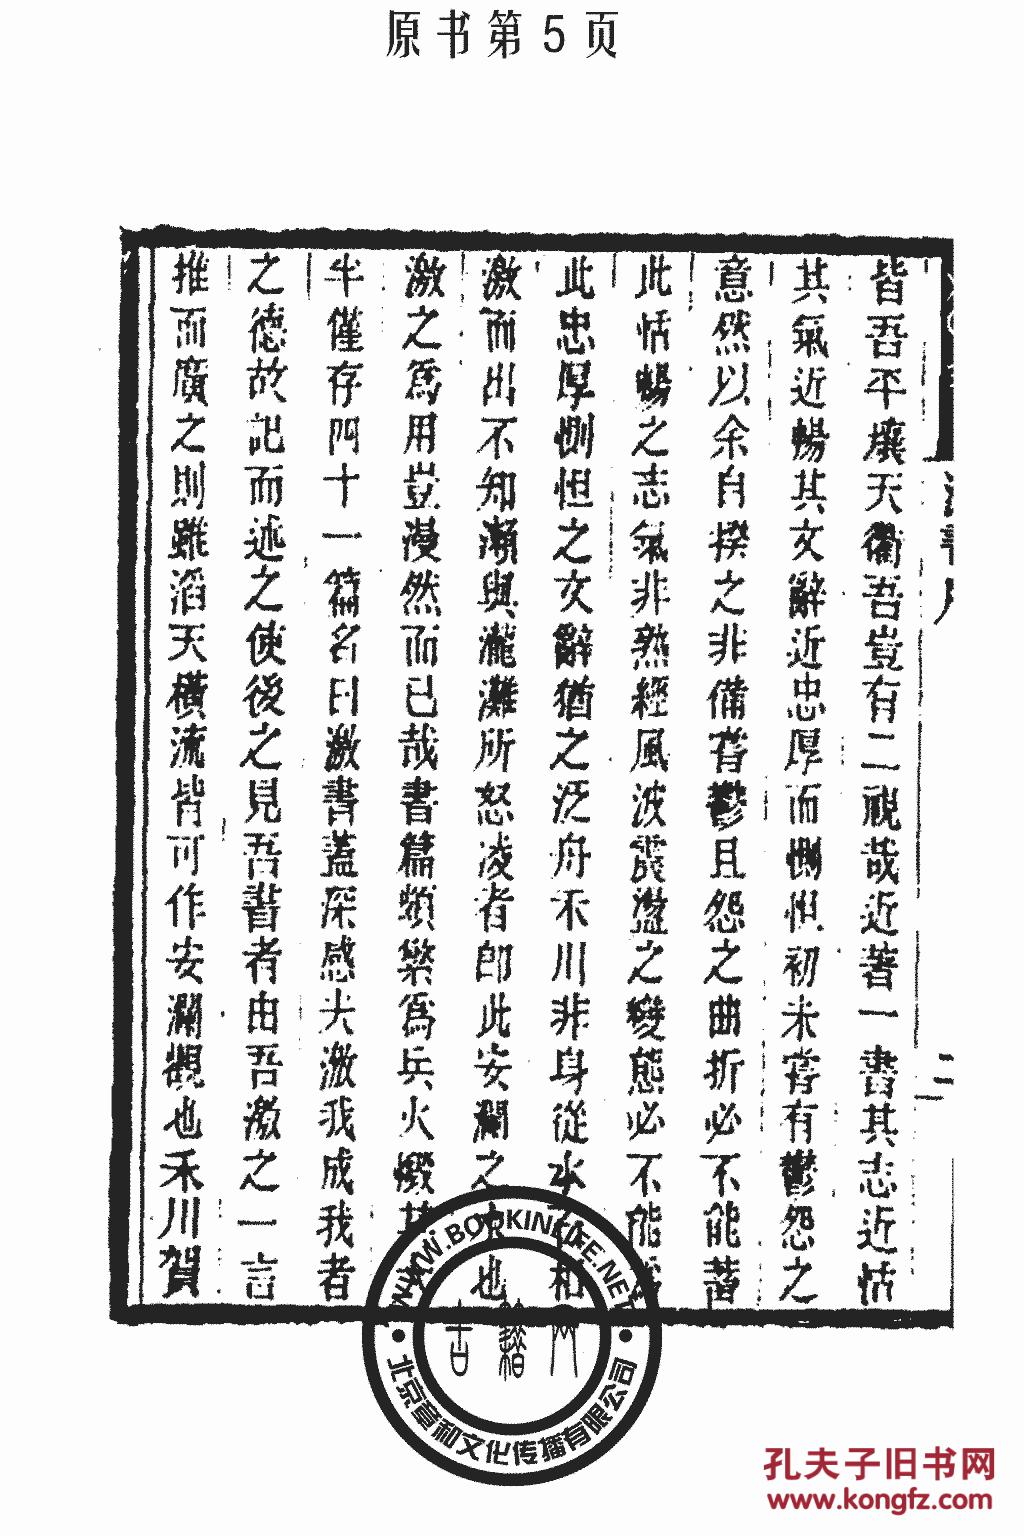 原书第5页
皆吾平壤天衢吾豈有二視哉近著一書其志近恬
其氣近暢其文辭近忠厚而惻怛初未嘗有鬱怨之
意然以余自揆之非備嘗鬱且怨之曲折必不能蓄
此恬暢之志氣非熟經風波震盪之變態必不能
此忠厚惻怛之文辭猶之泛舟禾川非身從水
激而出不知瀨與瀧灘所怒凌者卽此安瀾之水也
激之爲用豈漫然而已哉書篇頗繁爲兵火燬其
半僅存四十一篇名曰激書蓋深感夫激我成我者
之德故記而述之使後之見吾書者由吾激之一言
推而廣之則雖滔天橫流皆可作安瀾觀也禾川賀
二
WWW.BOOKINLIFE.NET
书籍网
北京章和文化传播有限公司
孔夫子旧书网
www.kongfz.com